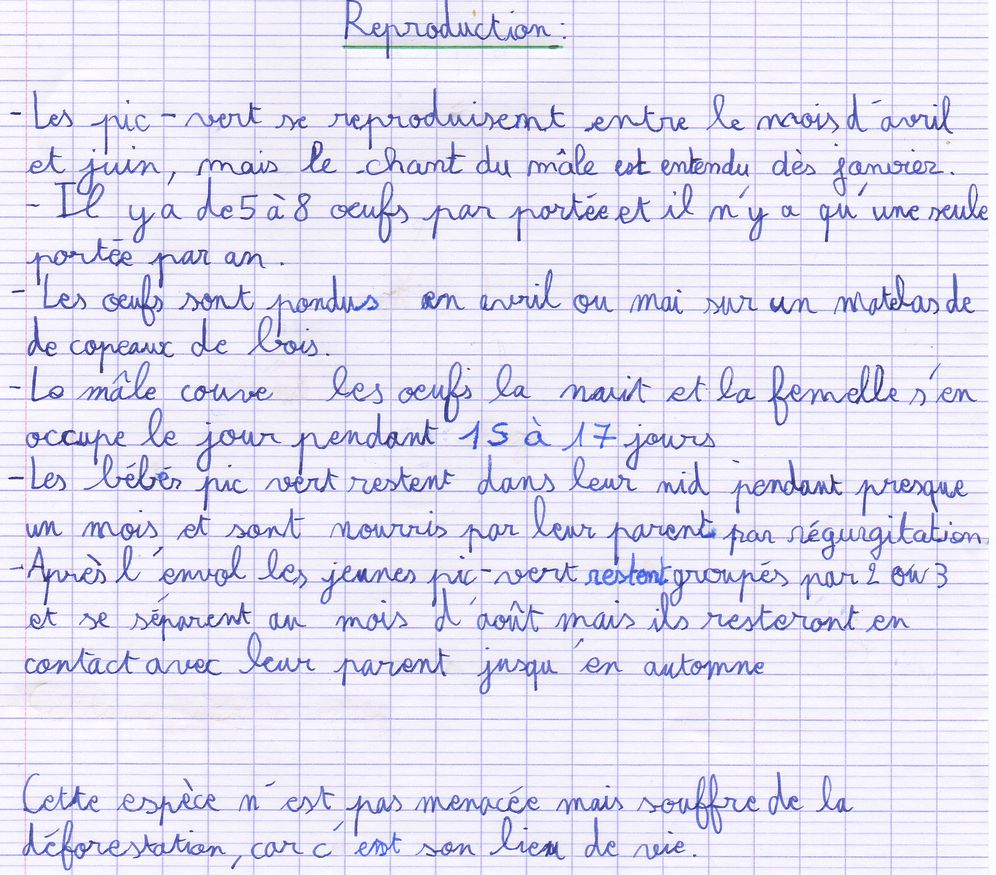 Reproduction :
- Les pic-vert se reproduisent entre le mois d'avril
et juin, mais le chant du mâle est entendu dès janvier.
- Il y a de 5 à 8 oeufs par portée et il n'y a qu'une seule
portée par an.
- Les oeufs sont pondus en avril ou mai sur un matelas de
de copeaux de bois.
- Le mâle couve les oeufs la nuit et la femelle s'en
occupe le jour pendant 15 à 17 jours
- Les bébés pic vert restent dans leur nid pendant presque
un mois et sont nourris par leur parent par régurgitation
- Après l'envol les jeunes pic-vert restent groupés par 2 ou 3
et se séparent au mois d'août mais ils resteront en
contact avec leur parent jusqu'en automne
Cette espèce n'est pas menacée mais souffre de la
déforestation, car c'est son lieu de vie.